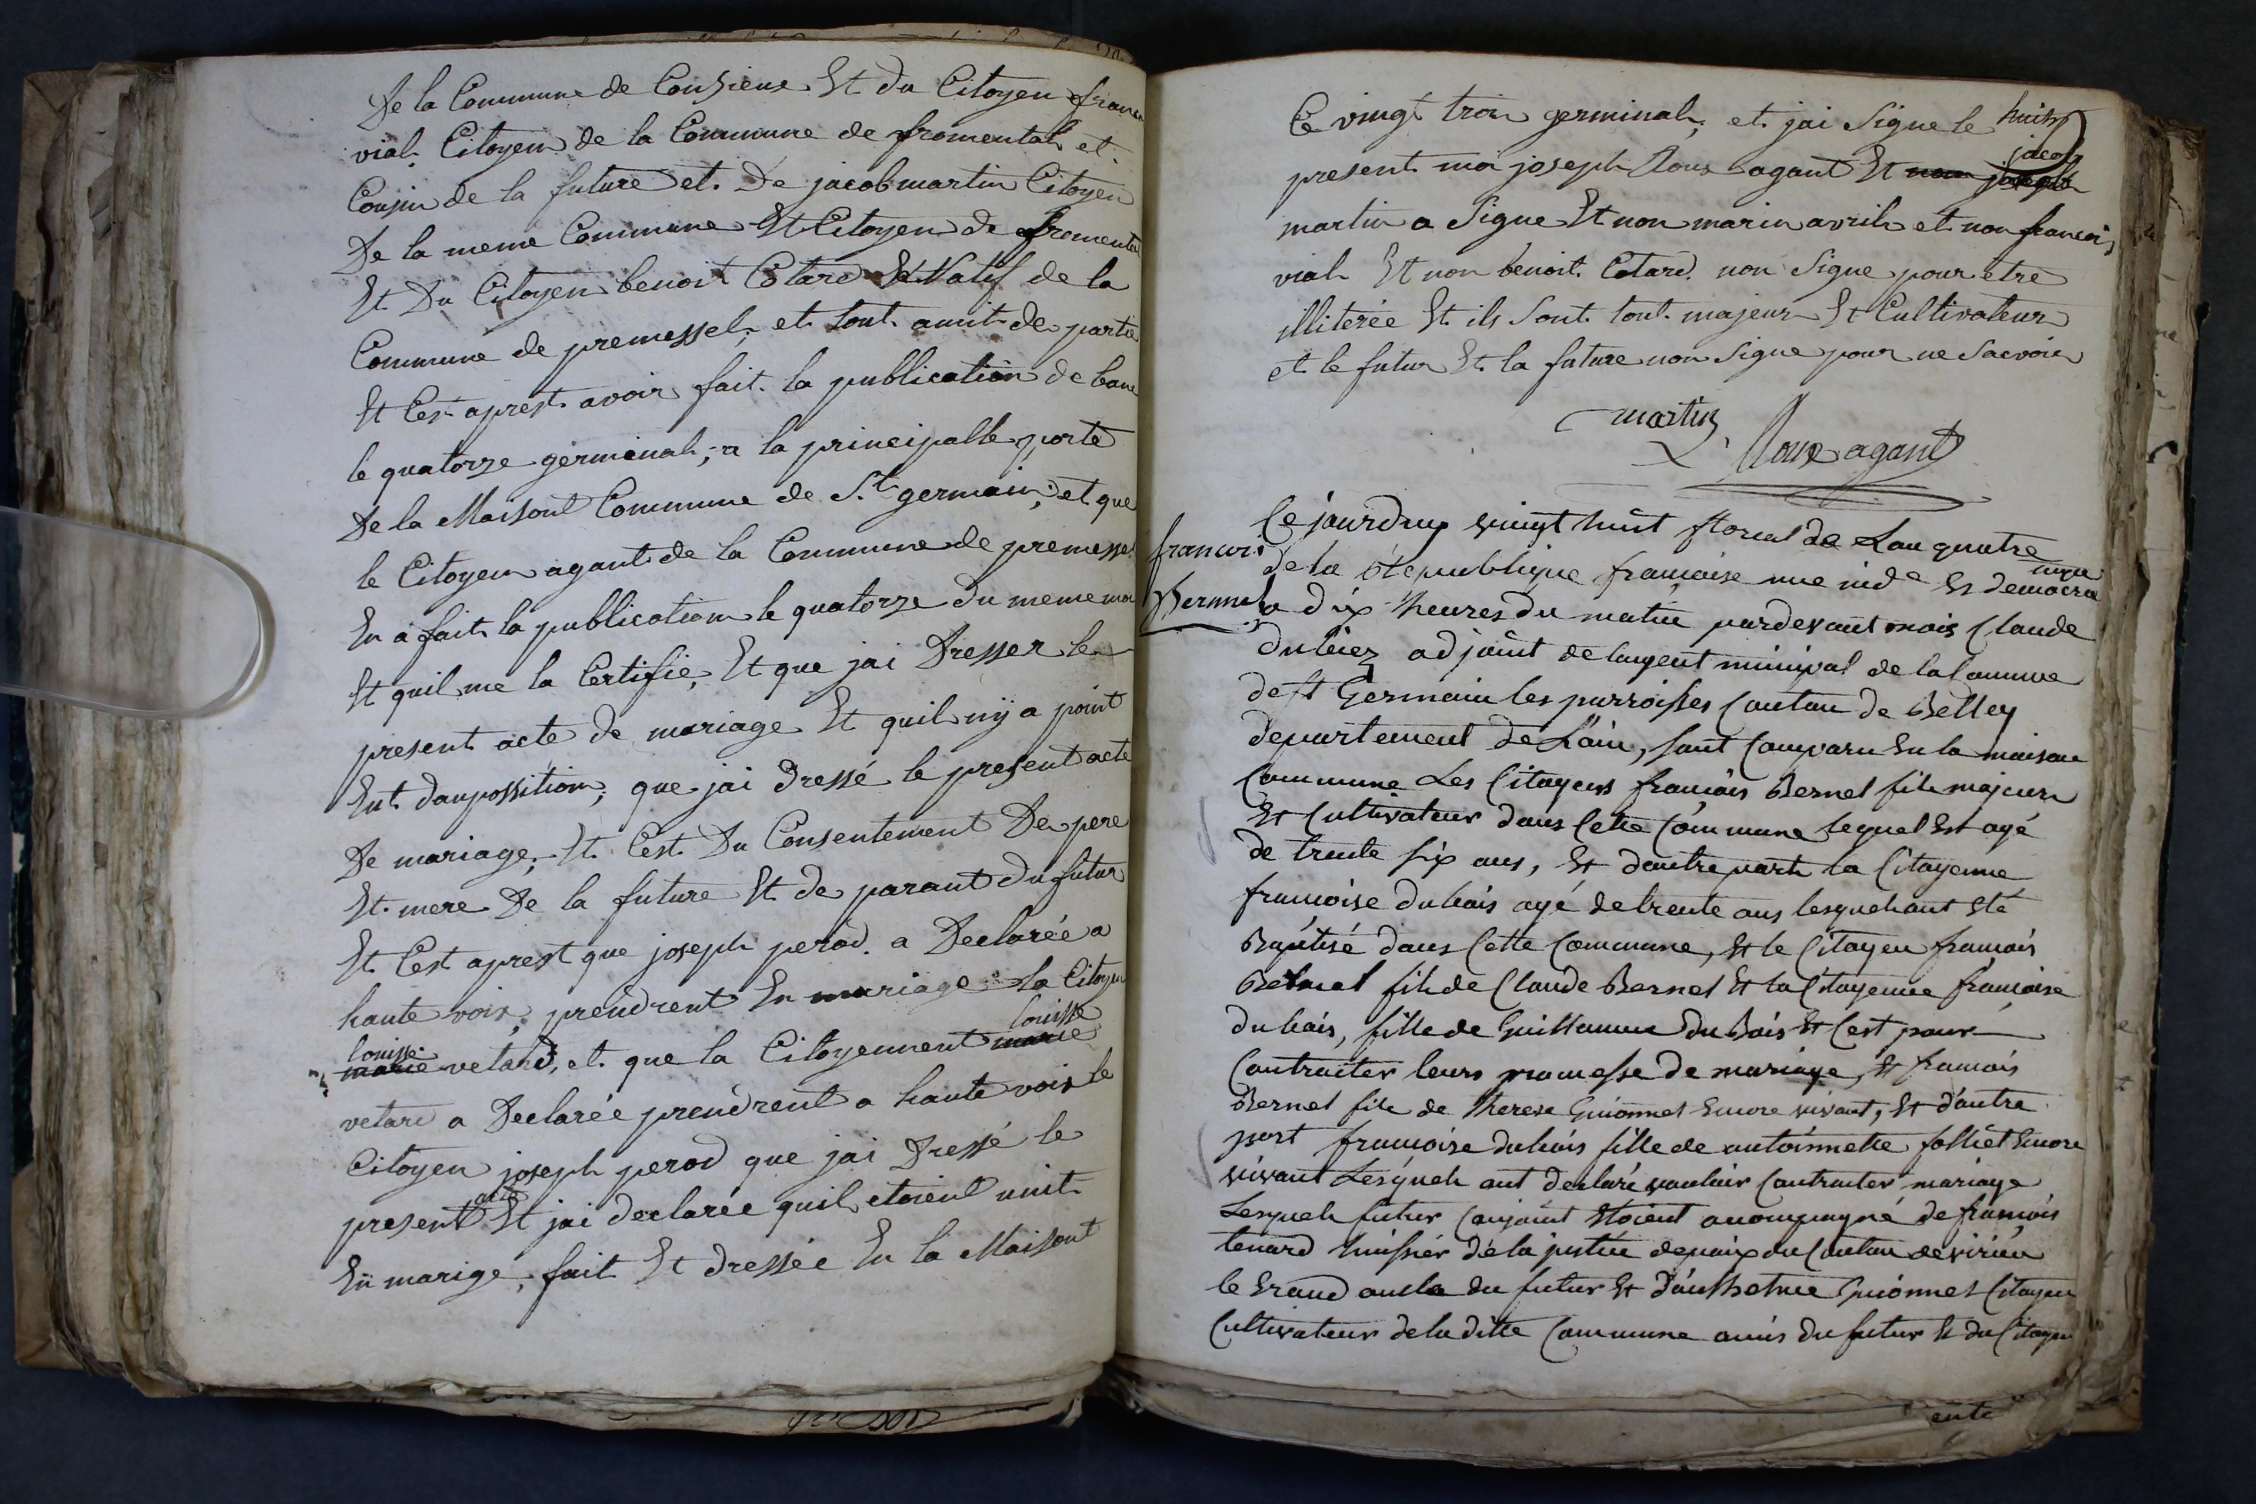 De la Commune de Conzieux Et du Citoyen francoi
vial. Citoyen de la Commune de fromental et.
Cousin de la future et. De jacob martin Citoyen
De la meme Commune Et Citoyen de fromental
Et Du Citoyen benoit Cotard Et Natif de la
Commune de premessel, et tout amit de parti
Et Cest aprest avoir fait la publication de banc
le quatorze germinal, a la principalle porte
De la Maisont Commune de St germain, et que
le Citoyen agant de la Commune de premessel
En a fait la publication le quatorze du meme moi
Et quil me la Certifie, Et que jai Dresser le
present acte de mariage Et quil nÿ a point
Eut daupossition, que jai dressé le present acte
De mariage, Et Cest Du Consentement De pere
Et mere De la future Et de parant du futur
Et Cest aprest que joseph perod a Declarée a
haute voix, prendrent En mariage la Citoyen
louisse marie vetard, et que la Citoyennent louisse marie
vetard a Declarée prendrent a haute voix le
Citoyen joseph perod que jai Dressé le
present acte Et jai declarée quil etoient unit
En marige, fait Et dressée En la Maisont
Ce vingt troi germinal, et jai Signe le huits
present moi joseph Roux agant Et non joseph jacob
martin a Signe Et non marin avril et non francois
vial Et non benoit Cotard non Signe pour etre
illiterée Et ils Sont tout majeur Et Cultivateur
et le futur Et la future non Signe pour ne Sacvoir
martin
Roux agant
francois
Bernel
Ce jourduy vingt huit floreal de Lan quatre
de la République francaise une inde Et democra tique
a dix heures du matin pardevant mois Claude
Dubiez adjoint de lagent minipal de la Comune
de st Germain les parroisses Canton de Belley
departement de Lain, sont Comparu En la maison
Commune Les Citoyens francois Bernel fils majeur
Et Cultivateur dans Cette Commune lequel Est agé
de trente six ans, Et dautre part la Citoyenne
francoise dubois agé de trente ans lesquels ont Eté
Baptisé dans Cette Commune, Et le Citoyen francois
Bernel fils de Claude Bernel Et la Citoyenne francoise
dubois, fille de Guillaume du Bois Et Cest pour
Contracter leurs promesse de mariage, Et francois
Bernel fils de therese Guionnet Encore vivant, Et dautre
part francoise dubois fille de antoinnette folliet Encore
vivant Lesquels ont declaré vouloir Contracter mariage
Lesquels futur Conjoint Etoient acompagné de francois
tenard huissier de la justice de paix du Canton de virieu
le Grand oncle du futur Et danthelme Guionnet Citoyen
Cultivateur de la ditte Commune amis du futur Et du Citoyen
ente